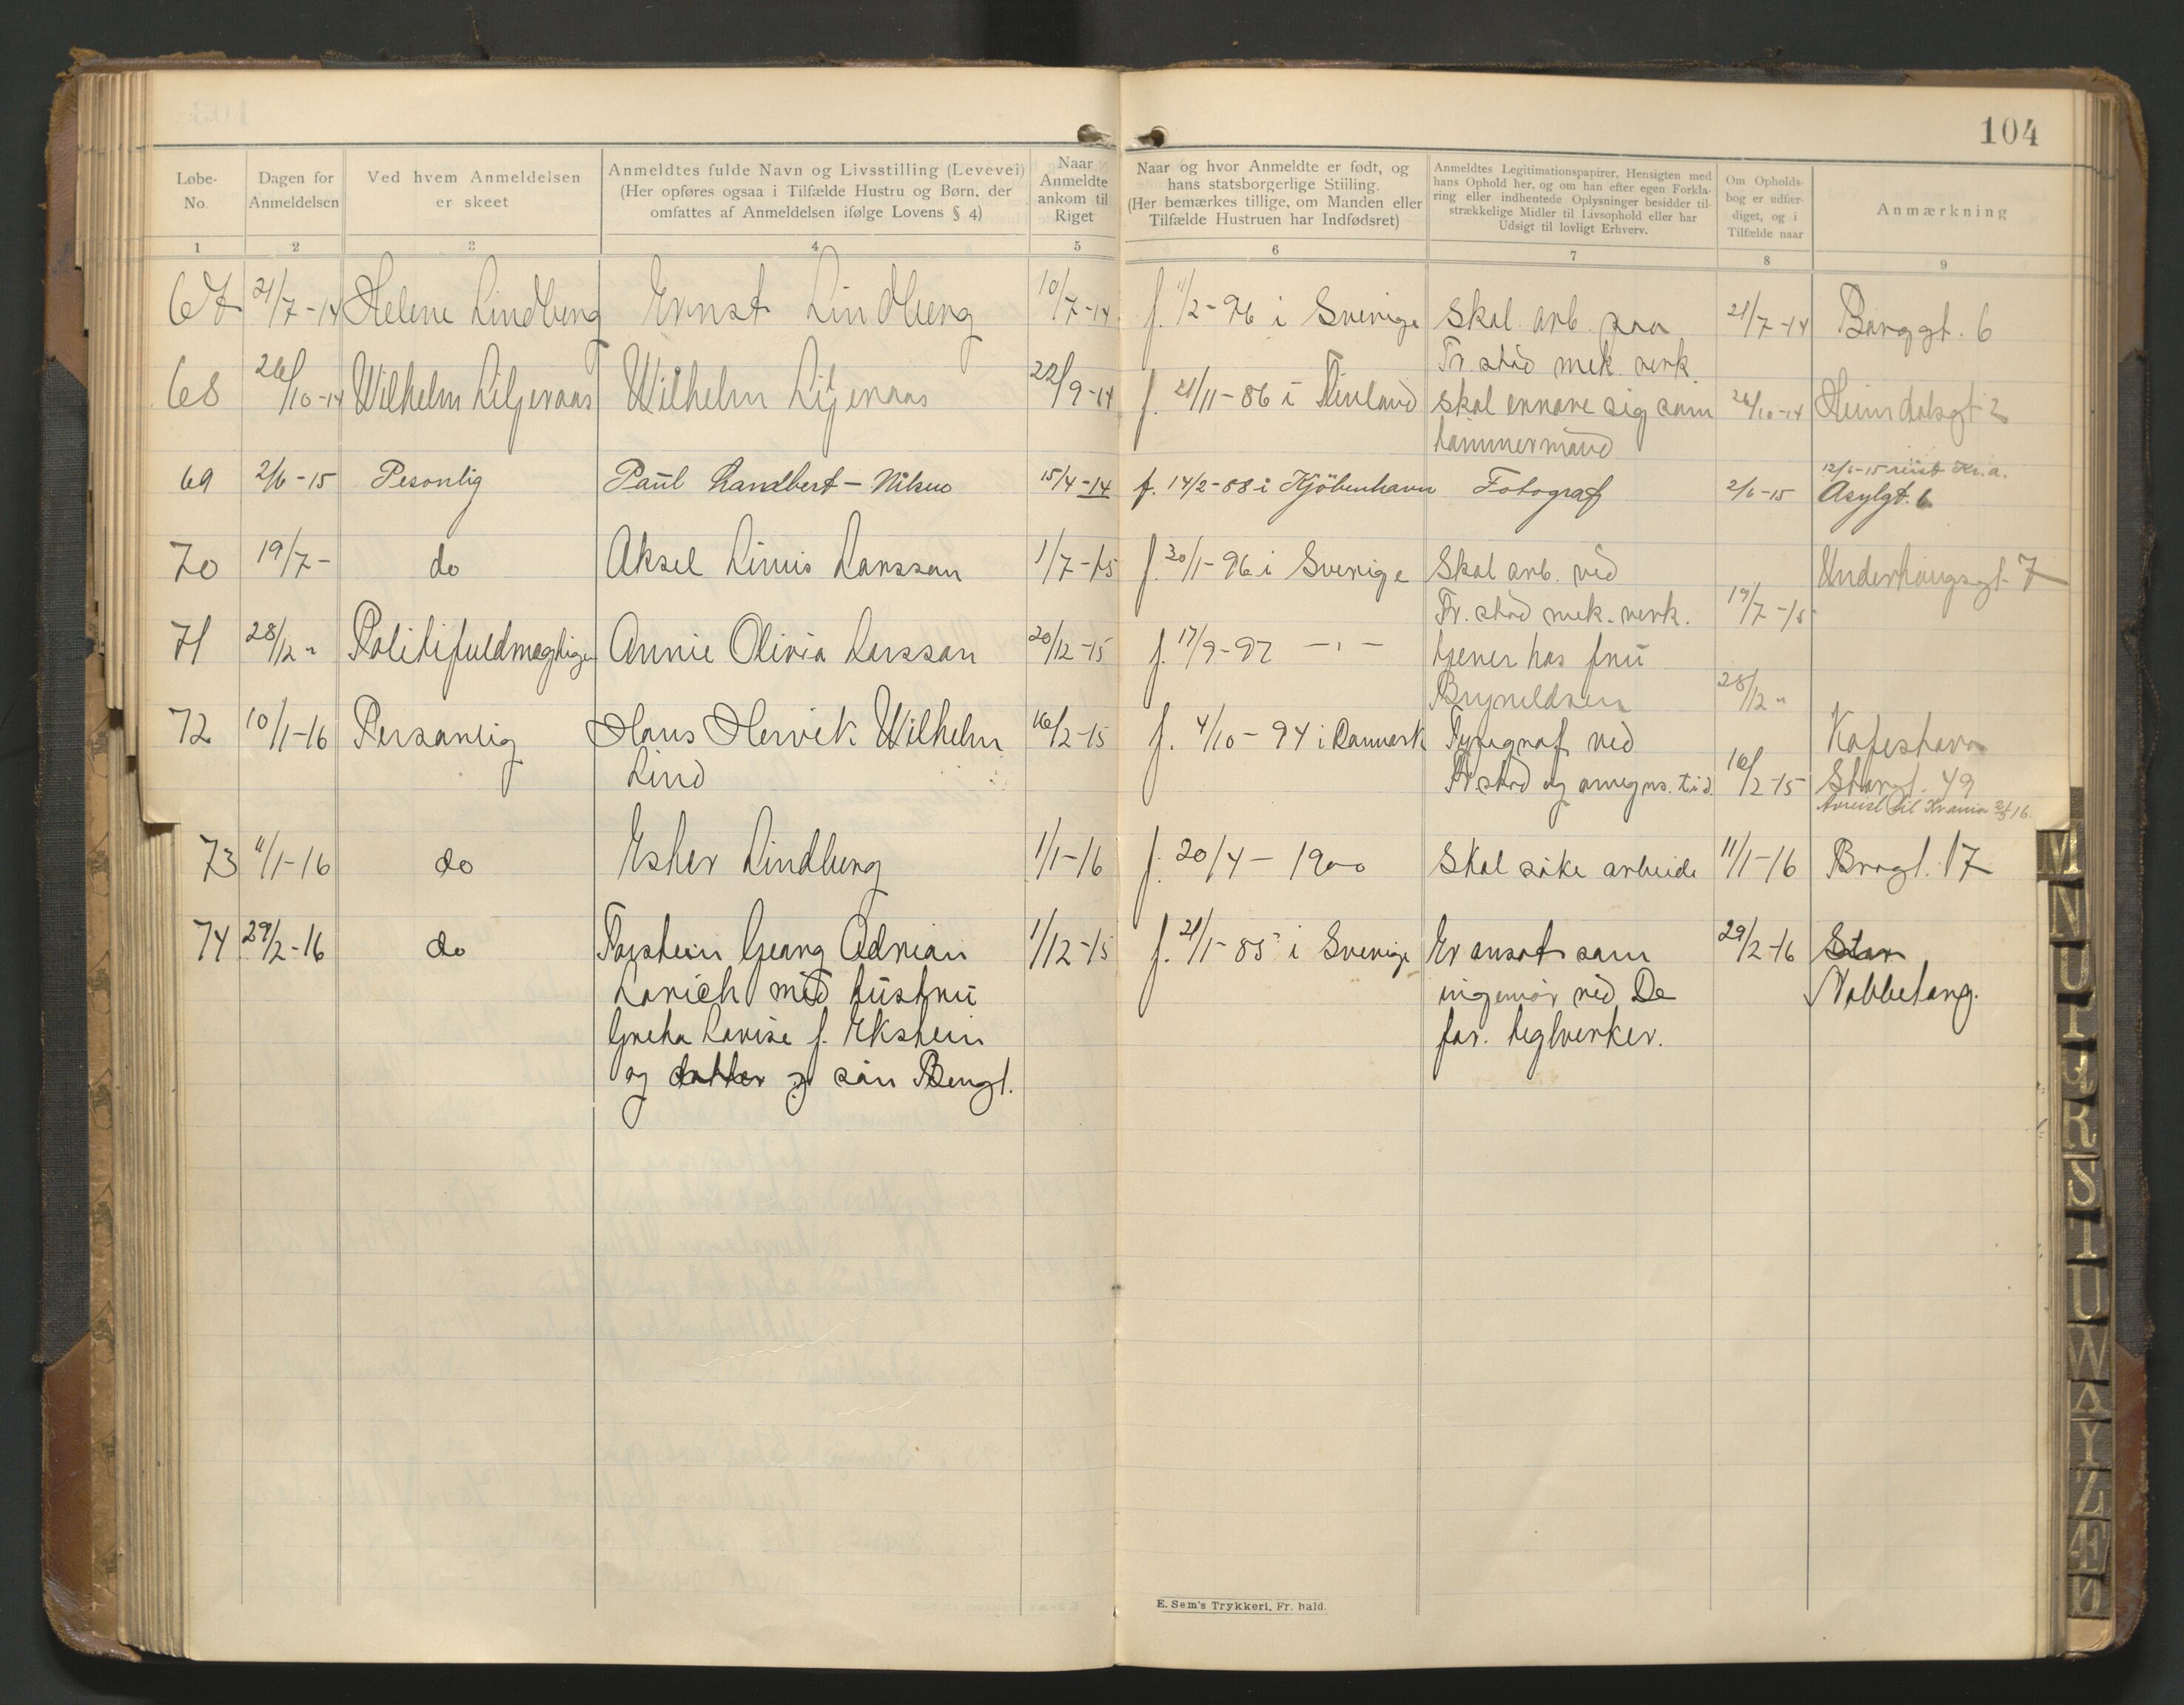 104
Løbe-No. | Dagen for Anmeldelsen | Ved hvem Anmeldelsen er skeet | Anmeldtes fulde Navn og Livsstilling (Levevei) (Her opføres ogsaa i Tilfælde Hustru og Børn, der omfattes af Anmeldelsen ifølge Lovens § 4) | Naar Anmeldte ankom til Riget | Naar og hvor Anmeldte er født, og hans statsborgerlige Stiiling. (Her bemærkes tillige, om Manden eller Tilfælde Hustruen har Indfødsret) | Anmeldtes Legitimationspapirer, Hensigten med hans Ophold her, og om han efter egen Forklaring eller indhentede Oplysninger besidder tilstrækkelige Midler til Livsophold eller har Udsigt til lovligt Erhverv. | Om Opholdsbog er udfærdiget, og i Tilfælde naar | Anmærkning
1 | 2 | 3 | 4 | 5 | 6 | 7 | 8 | 9
67 | 21/7-14 | Helene Lindberg | Ernst Lindberg | 10/7-14 | f. 11/2-96 i Sverige | Skal arb. paa | 21/7-14 | Borggt. 6
Fr.stad mek. verk.
68 | 26/10-14 | Wilhelm Liljeroos | Wilhelm Liljeroos | 22/9-14 | f. 21/11-86 i Finland | skal ernære sig som | 26/10-14 | Heimdalsgt 2
tømmermand
12/6-15 reist Kr.a.
69 | 2/6-15 | Pesonlig | Paul Landbert - Nilsen | 15/4-14 | f. 14/2-88 i Kjöbenhavn | Fotograf | 2/6-15 | Asylgt. 6
70 | 19/7- | do | Aksel Linus Larsson | 1/7-15 | f. 30/1-96 i Sverige | Skal arb. ved | Underhaugsgt. 7
Fr.stad mek. verk. | 19/7-15
71 | 28/12 " | Politifuldmægtigen | Annie Olivia Larsson | 20/12-15 | f. 17/9-97 -"- | tjener hos fru
Brynildsen | 28/12 "
72 | 10/1-16 | Personlig | Hans Henrik Wilhelm | 16/2-15 | f. 4/10-94 i Danmark | Typograf ved
Lind | Fr.stad og omegns. tid. | 16/2-15 | Storgt. 49
Avreist til Kr.ania 2/3 16.
73 | 11/1-16 | do | Ester Lindberg | 1/1-16 | f. 20/4-1900 | Skal søke arbeide | 11/1-16 | Brogt. 17
74 | 29/2-16 | do | Torstein Georg Adrian | 1/12-15 | f. 21/1-85 i Sverige | Er ansat som | 29/2-16 | Stor
med hustru | ingeniør ved De | Nabbetorp.
Greta Lovise f. Ekstein | for. teglverker.
og datter og søn Bengt.
E. Sem's Trykkeri, Fr. hald.
M
N
O
P
R
S
T
U
W
A
Y
Z
Æ
Ø